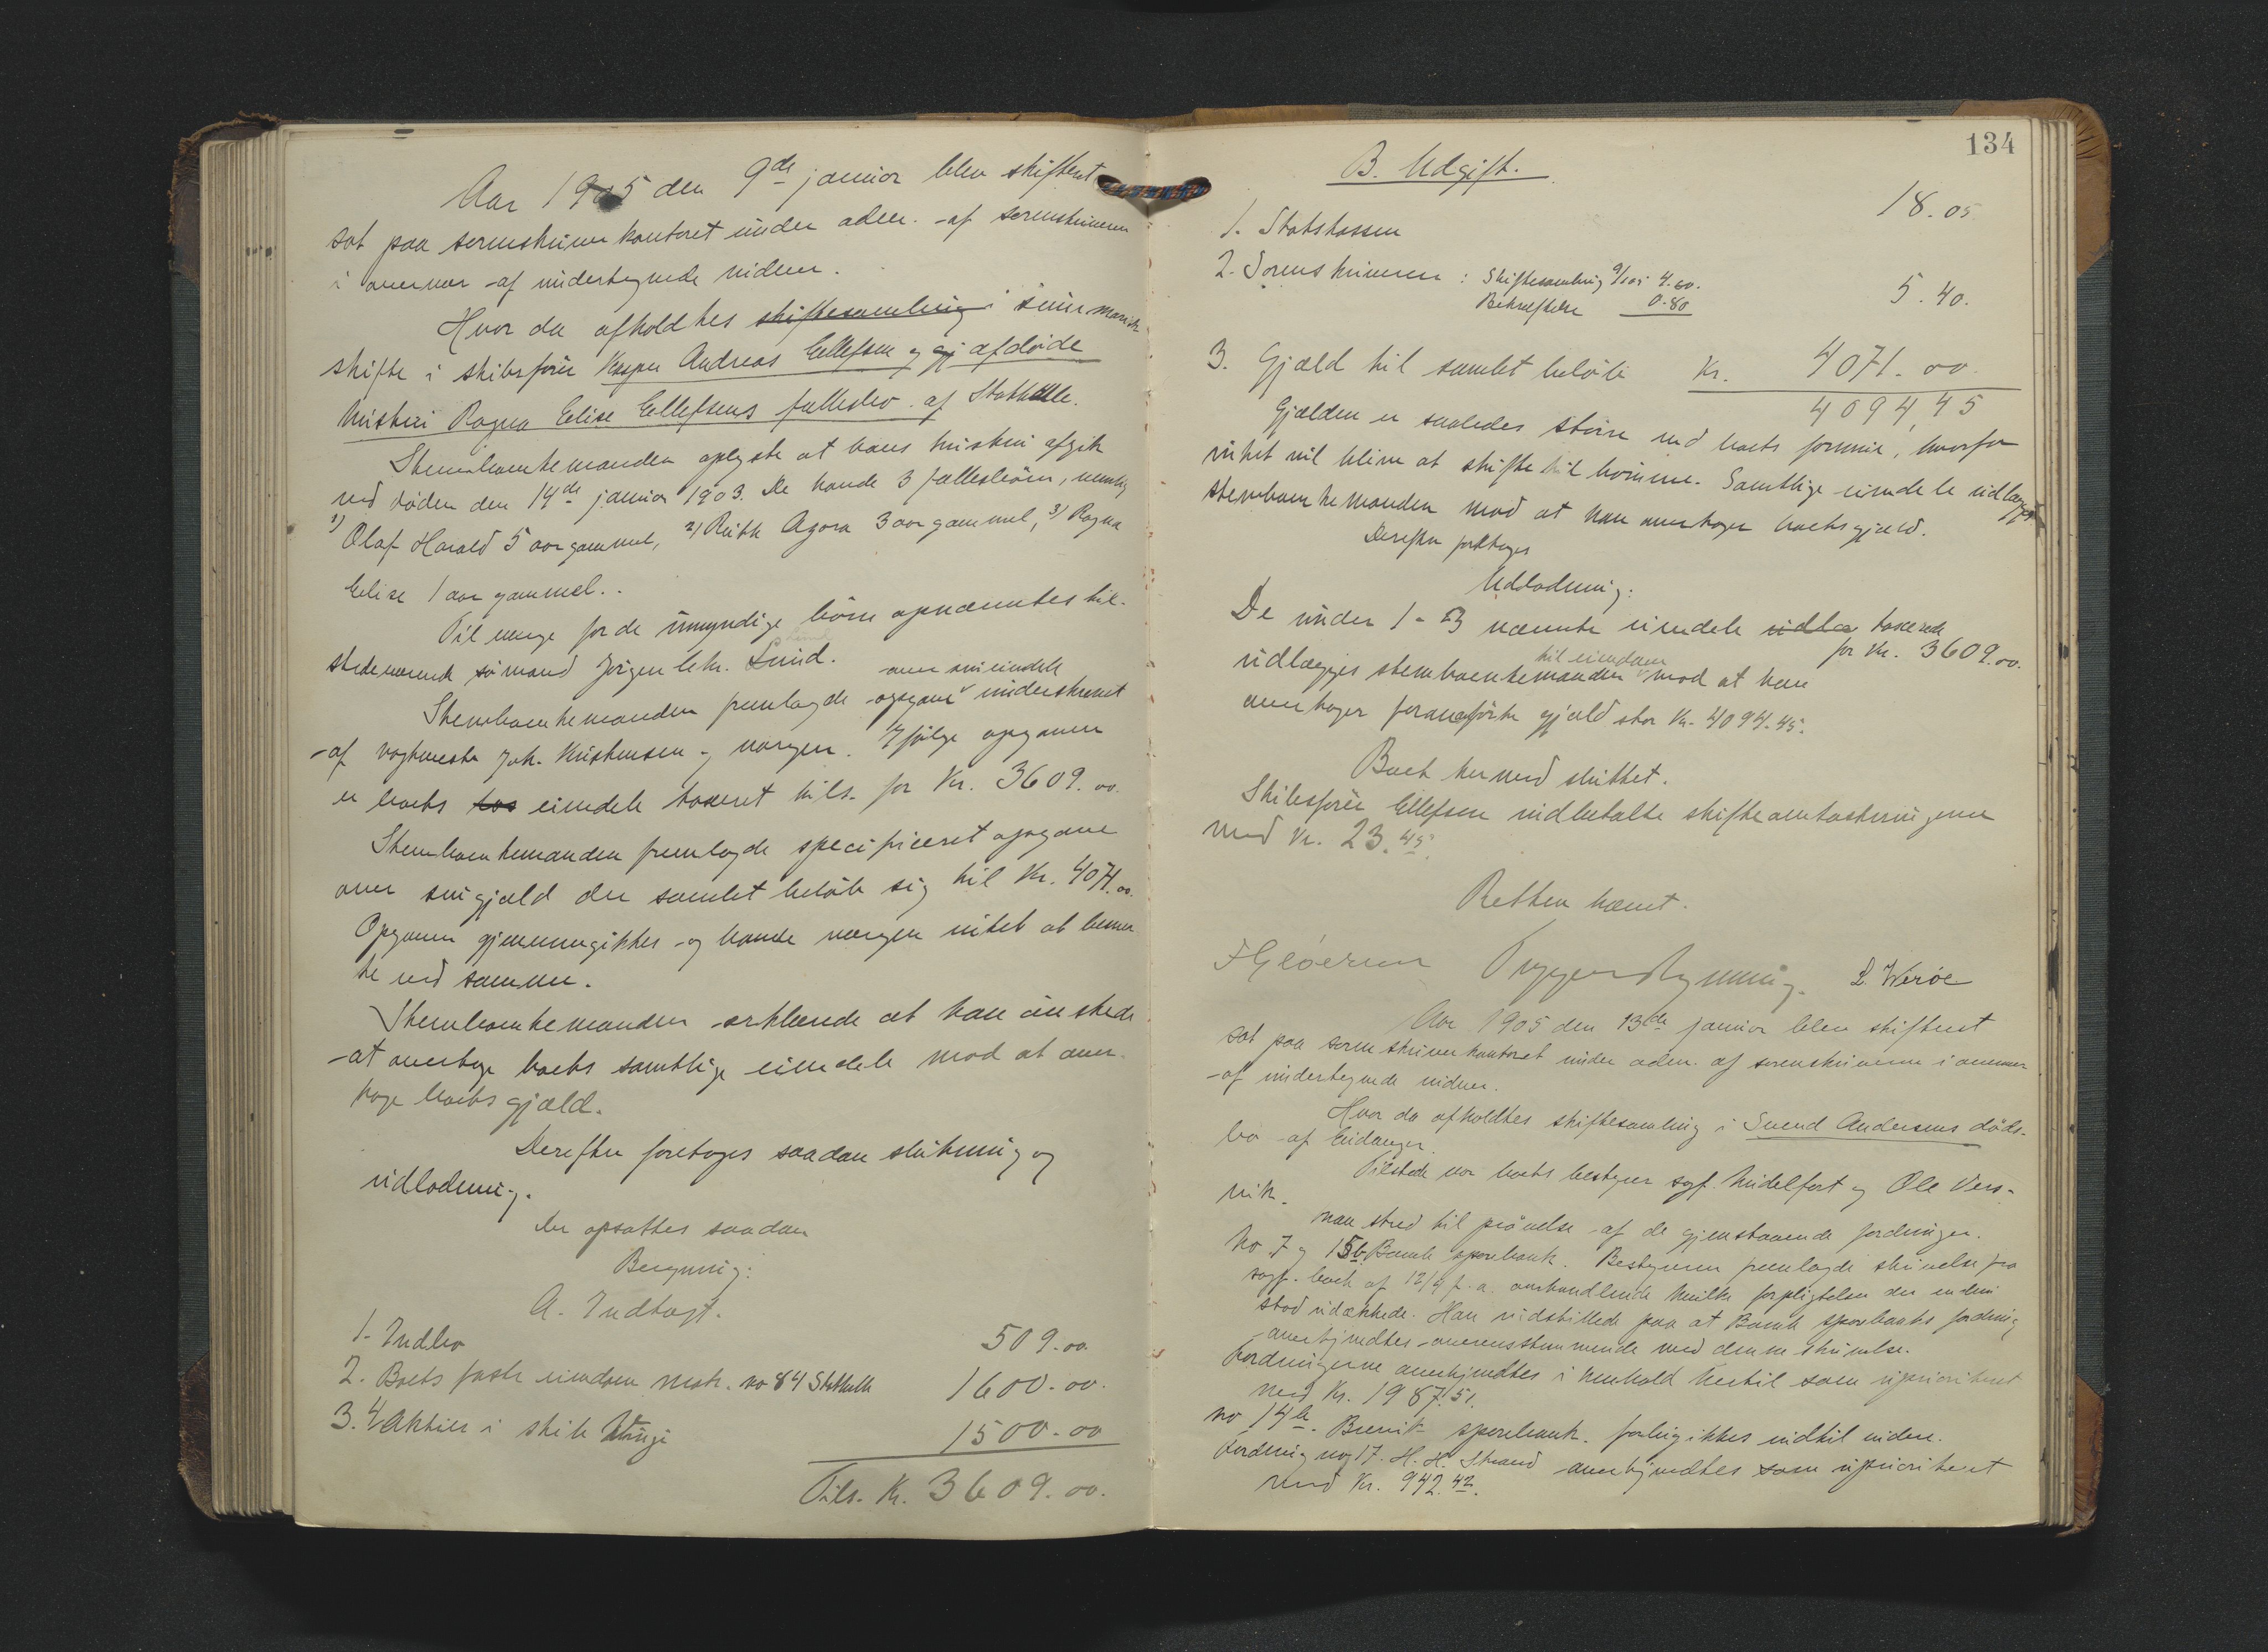 Aar 1905 den 9de januar blev skifteret
sat paa sorenskriverkontoret under adm. af sorenskriveren
i overvær af undertegnede vidner.
Hvor da afholdtes skiftesamling i
skifte i skibsfører Kasper Andreas Ellefsen og afdøde
hustru Ragna Elise Ellefsens fællesbo af Stathelle.
Stervboenkemanden oplyste at hans hustru afgik
ved døden den 14de januar 1903. De havde 3 fællesbørn, nemlig
1) Olaf Harald 5 aar gammel, 2) Ruth Agora 3 aar gammel, 3) Ragna
Elise 1 aar gammel.
Til verge for de umyndige børn opnævntes til-
stedeværende sømand Jørgen Chr. Lund.
over sin eiendele
Stervboenkemanden fremlagde opgave underskrevet
af vagtmester Joh. Kristensen og vergen. Ifølge opgaven
er boets eiendele taxeret tils. for Kr. 3609.00.
Stervboenkemanden fremlagde specificeret opgave
over sin gjæld der samlet beløb sig til Kr. 4071.00.
Opgaven gjennemgikkes og havde vergen intet at bemær-
ke ved samme.
Stervboenkemanden erklærede at han ønskede
at overtage boets samtlige eiendele mod at over-
tage boets gjæld.
Derefter foretoges saadan slutning og
udlodning.
Der opsattes saadan
Beregning:
A. Indtægt.
1. Indbo 509.00
2. Boets faste eiendom matr. no 84 Stathelle 1600.00.
3. 4 Aktier i skib 1500.00
Tils. Kr. 3609.00.
134
B. Udgift.
1. Statskassen 18.05
2. Sorenskriveren: Skiftesamling 9/1 05 4.60.
Bekræftelse 0.80 5.40.
3. Gjæld til samlet beløb Kr. 4071.00.
4094,45
Gjælden er saaledes større end boets formue, hvorfor
intet vil blive at skifte til børnene. Samtlige eiendele udlægges
stervboenkemanden mod at han overtager boets gjæld.
Derefter foretoges
Udlodning:
De under 1-3 nævnte eiendele udlæ taxerede
for Kr. 3609.00.
til eiendom
udlægges stervboenkemanden mod at han
overtager foranførte gjæld stor Kr. 4094.45.
Boet hermed sluttet.
Skibsfører Ellefsen indbetalte skifteomkostningerne
med Kr. 23.45.
Retten hævet.
Trygve Rynning. L. Werøe
Aar 1905 den 13de januar blev skifteret
sat paa sorenskriverkontoret under adm. af sorenskriveren i overvær
af undertegnede vidner.
Hvor da afholdtes skiftesamling i Svend Andersens døds-
bo af Eidanger.
Tilstede var boets bestyrer sagf. Huidtfelt og Ole Vers-
vik.
Man skred til prøvelse af de gjenstaaende fordringer.
No 7 og 15b Bamle sparebank. Bestyreren fremlagde skrivelse fra
sagf. af 12/9 f.a. omhandlende hvilke forpligtelser der endnu
stod udækkede. Han indstillede paa at Bamle sparebanks fordring
anerkjendtes overensstemmende med denne skrivelse.
Fordringerne anerkjendtes i henhold hertil som uprioriteret
med Kr. 1987.51.
No 14b. Brevik sparebank. forbigikkes indtil videre.
Fordring no 17. H. H. Strand anerkjendtes som uprioriteret
med Kr. 942.42.